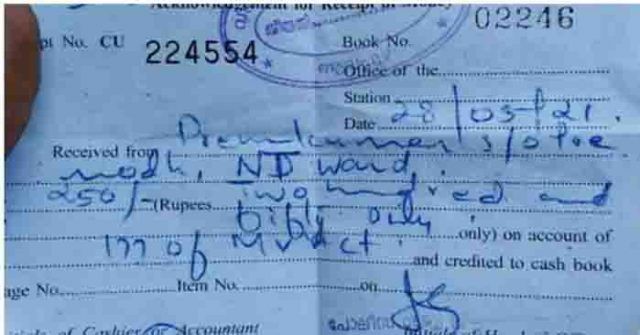 Acknowledgement for Receipt of Money
02246
pt No. CU 224554
Book No.
Office of the
Station
Date 28/05/21.
Received from Premkumar s/o
ND ward,
250/- (Rupees two hundred and
fifty only only) on account of
177 of MV Act.
and credited to cash book
age No. Item No. on
Cashier or Accountant